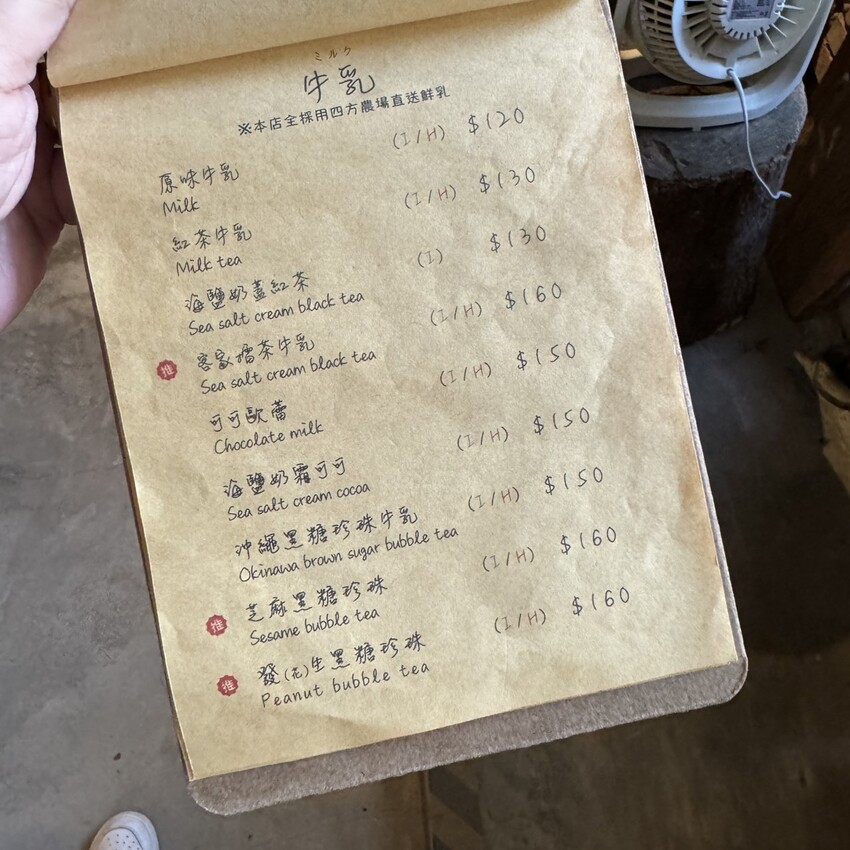 ミルク
牛乳
※本店全採用四方農場直送鮮乳
原味牛乳 (I/H) $120
Milk
紅茶牛乳 (I/H) $130
Milk tea
海鹽奶蓋紅茶 (I) $130
Sea salt cream black tea
推 客家擂茶牛乳 (I/H) $160
Sea salt cream black tea
可可歐蕾 (I/H) $150
Chocolate milk
海鹽奶霜可可 (I/H) $150
Sea salt cream cocoa
沖繩黑糖珍珠牛乳 (I/H) $150
Okinawa brown sugar bubble tea
推 芝麻黑糖珍珠 (I/H) $160
Sesame bubble tea
推 發(花)生黑糖珍珠 (I/H) $160
Peanut bubble tea